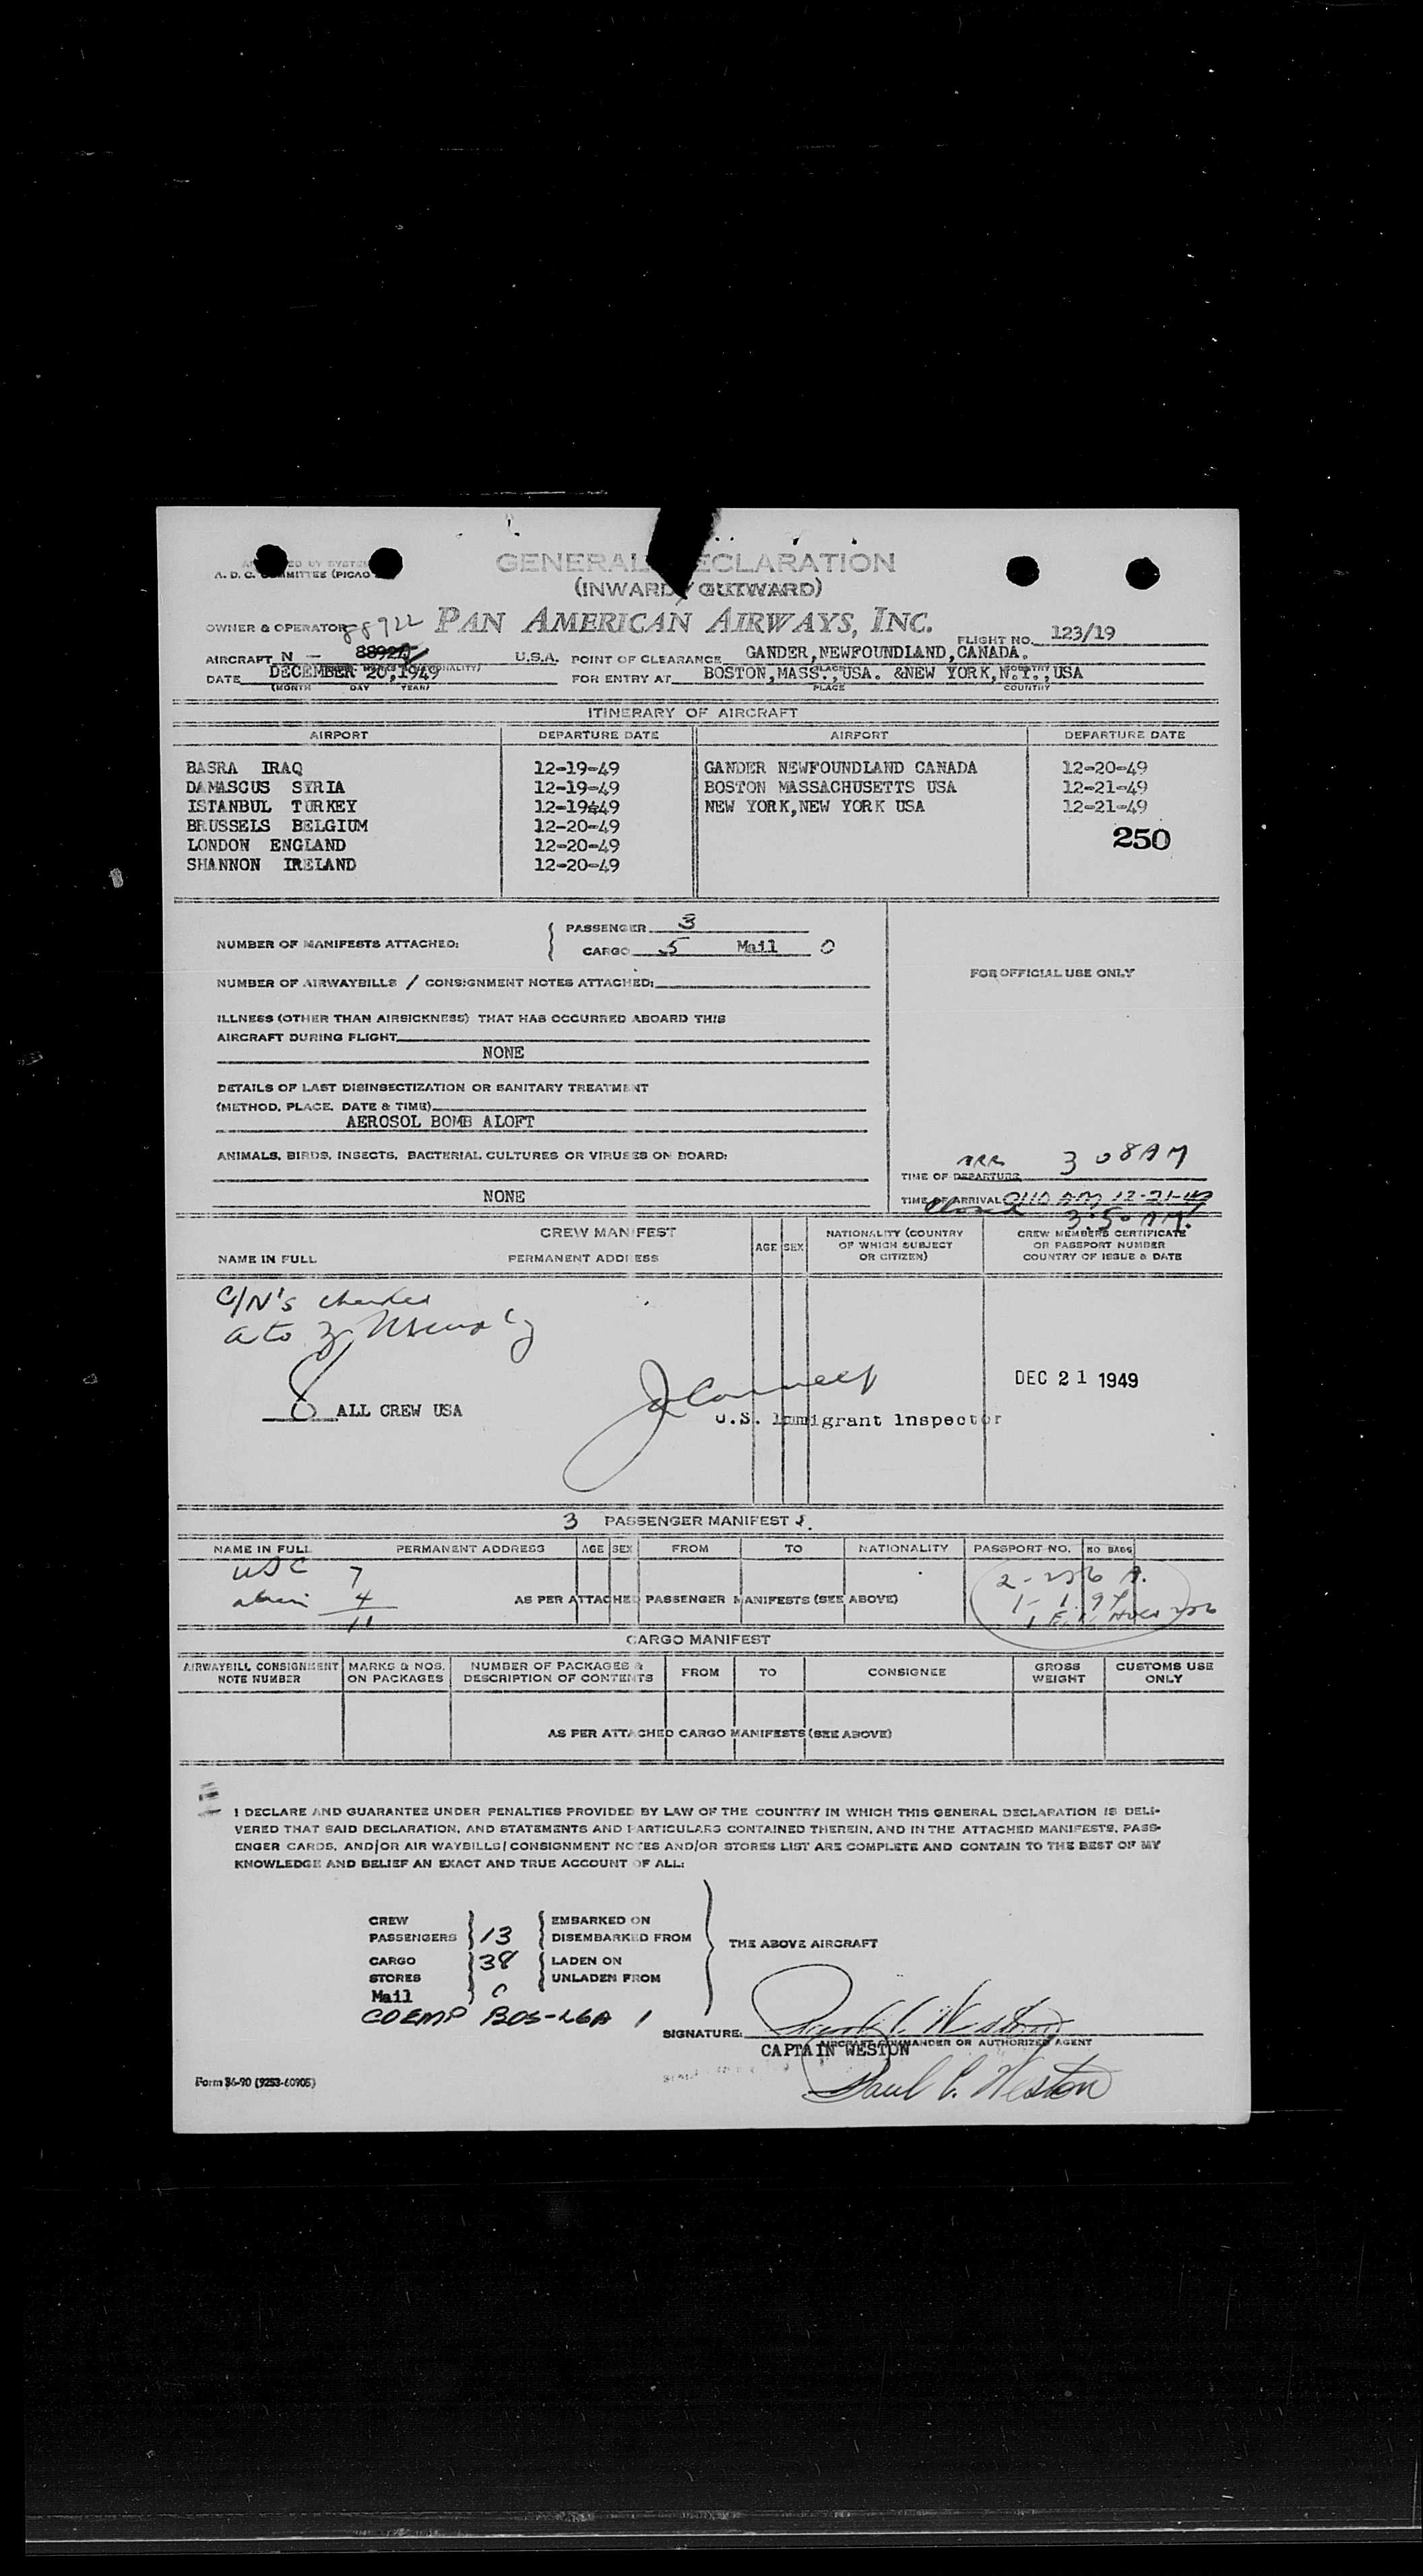 GENERAL DECLARATION
A. D. C. COMMITTEE (PICAO
(INWARD / OUTWARD)
OWNER & OPERATOR 88922 PAN AMERICAN AIRWAYS, INC.
FLIGHT NO. 123/19
AIRCRAFT N - U.S.A. POINT OF CLEARANCE GANDER, NEWFOUNDLAND, CANADA.
DATE DECEMBER 20, 1949 FOR ENTRY AT BOSTON, MASS., USA. &NEW YORK, N.Y., USA
(MONTH DAY YEAR) PLACE COUNTRY
ITINERARY OF AIRCRAFT
AIRPORT DEPARTURE DATE AIRPORT DEPARTURE DATE
BASRA IRAQ 12-19-49 GANDER NEWFOUNDLAND CANADA 12-20-49
DAMASCUS SYRIA 12-19-49 BOSTON MASSACHUSETTS USA 12-21-49
ISTANBUL TURKEY 12-19-49 NEW YORK, NEW YORK USA 12-21-49
BRUSSELS BELGIUM 12-20-49
250
LONDON ENGLAND 12-20-49
SHANNON IRELAND 12-20-49
NUMBER OF MANIFESTS ATTACHED: PASSENGER 3
CARGO 5 Mail 0
FOR OFFICIAL USE ONLY
NUMBER OF AIRWAYBILLS / CONSIGNMENT NOTES ATTACHED:
ILLNESS (OTHER THAN AIRSICKNESS) THAT HAS OCCURRED ABOARD THIS
AIRCRAFT DURING FLIGHT
NONE
DETAILS OF LAST DISINSECTIZATION OR SANITARY TREATMENT
(METHOD, PLACE, DATE & TIME)
AEROSOL BOMB ALOFT
ANIMALS, BIRDS, INSECTS, BACTERIAL CULTURES OR VIRUSES ON BOARD:
ARR 3 08 AM
TIME OF DEPARTURE
NONE
TIME OF ARRIVAL 12-21-49
3:50 AM.
CREW MANIFEST
NAME IN FULL PERMANENT ADDRESS AGE SEX NATIONALITY (COUNTRY OF WHICH SUBJECT OR CITIZEN) CREW MEMBERS CERTIFICATE OR PASSPORT NUMBER COUNTRY OF ISSUE & DATE
C/N's
DEC 21 1949
8 ALL CREW USA
U.S. Immigrant Inspector
3 PASSENGER MANIFEST
NAME IN FULL PERMANENT ADDRESS AGE SEX FROM TO NATIONALITY PASSPORT NO. NO BAGS
USC 7
4
AS PER ATTACHED PASSENGER MANIFESTS (SEE ABOVE)
11
CARGO MANIFEST
AIRWAYBILL CONSIGNMENT NOTE NUMBER MARKS & NOS. ON PACKAGES NUMBER OF PACKAGES & DESCRIPTION OF CONTENTS FROM TO CONSIGNEE GROSS WEIGHT CUSTOMS USE ONLY
AS PER ATTACHED CARGO MANIFESTS (SEE ABOVE)
I DECLARE AND GUARANTEE UNDER PENALTIES PROVIDED BY LAW OF THE COUNTRY IN WHICH THIS GENERAL DECLARATION IS DELI-
VERED THAT SAID DECLARATION, AND STATEMENTS AND PARTICULARS CONTAINED THEREIN, AND IN THE ATTACHED MANIFESTS, PASS-
ENGER CARDS, AND/OR AIR WAYBILLS/CONSIGNMENT NOTES AND/OR STORES LIST ARE COMPLETE AND CONTAIN TO THE BEST OF MY
KNOWLEDGE AND BELIEF AN EXACT AND TRUE ACCOUNT OF ALL:
CREW EMBARKED ON
PASSENGERS 13 DISEMBARKED FROM THE ABOVE AIRCRAFT
CARGO 38 LADEN ON
STORES UNLADEN FROM
Mail 0
COEMP BOS-LGA 1
SIGNATURE:
AIRCRAFT COMMANDER OR AUTHORIZED AGENT
CAPTAIN WESTON
Paul C. Weston
Form 86-90 (9253-60905)